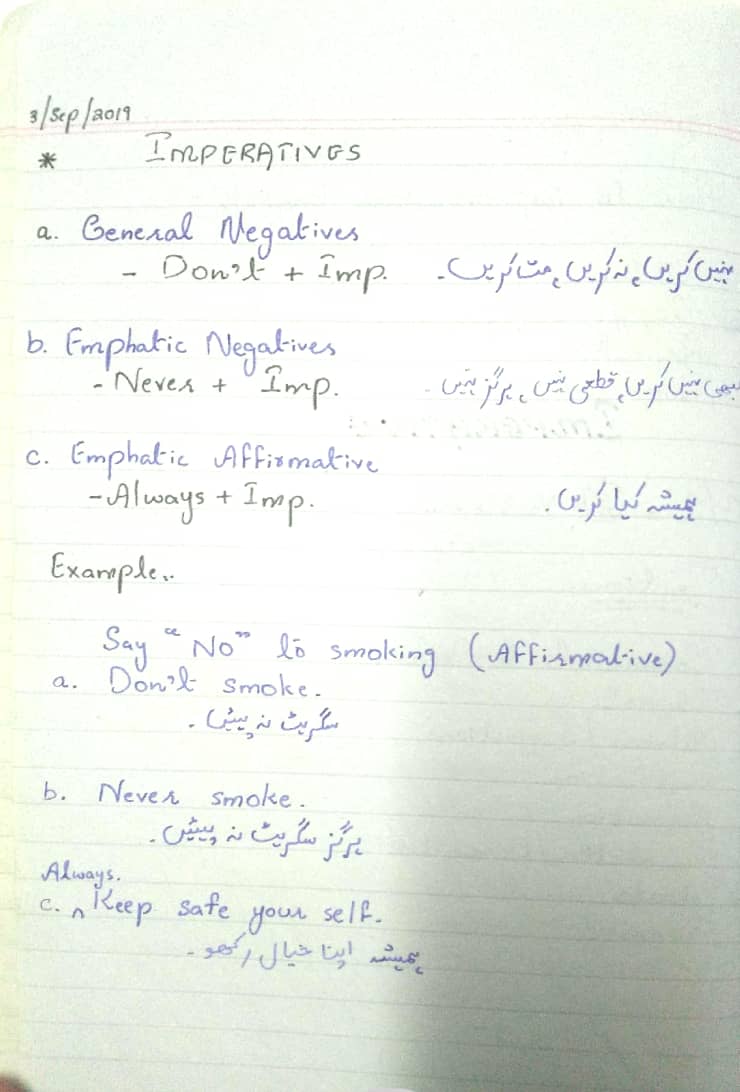 3/Sep/2019
* IMPERATIVES
a. General Negatives
- Don't + Imp. نہیں کریں، نہ کریں، مت کریں۔
b. Emphatic Negatives
- Never + Imp. کبھی نہیں کریں، قطعی نہیں، ہرگز نہیں۔
c. Emphatic Affirmative
- Always + Imp. ہمیشہ کیا کریں۔
Example..
Say "No" to smoking (Affirmative)
a. Don't smoke.
سگریٹ نہ پیئں۔
b. Never smoke.
ہرگز سگریٹ نہ پیئں۔
Always.
c. ^ Keep safe your self.
ہمیشہ اپنا خیال رکھو۔